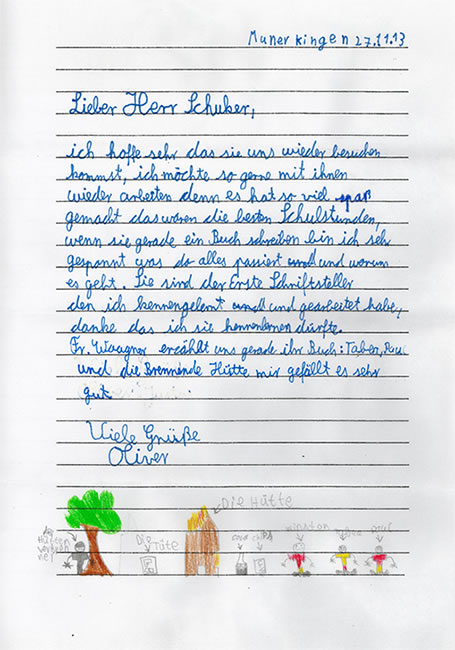 Munerkingen 27.11.13
Lieber Herr Schuker,
ich hoffe sehr das sie uns wieder besuchen
kommst, ich möchte so gerne mit ihnen
wieder arbeiten denn es hat so viel spaß
gemacht das waren die besten Schulstunden,
wenn sie gerade ein Buch schreiben bin ich seh
gespannt was da alles passiert und warum
es geht. Sie sind der Erste Schriftsteller
den ich kennengelernt und gearbeitet habe,
danke das ich sie kennenlernen dürfte.
Fr. Waagner erzählt uns gerade ihr Buch: Taber,
und die Brennende Hütte mir gefällt es sehr
gut
Viele Grüße
Oliver
Die Hütte
Die Tüte
winston